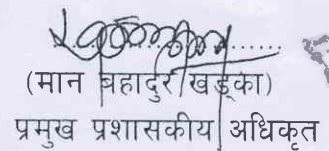 (मान बहादुर खड्का)
प्रमुख प्रशासकीय अधिकृत